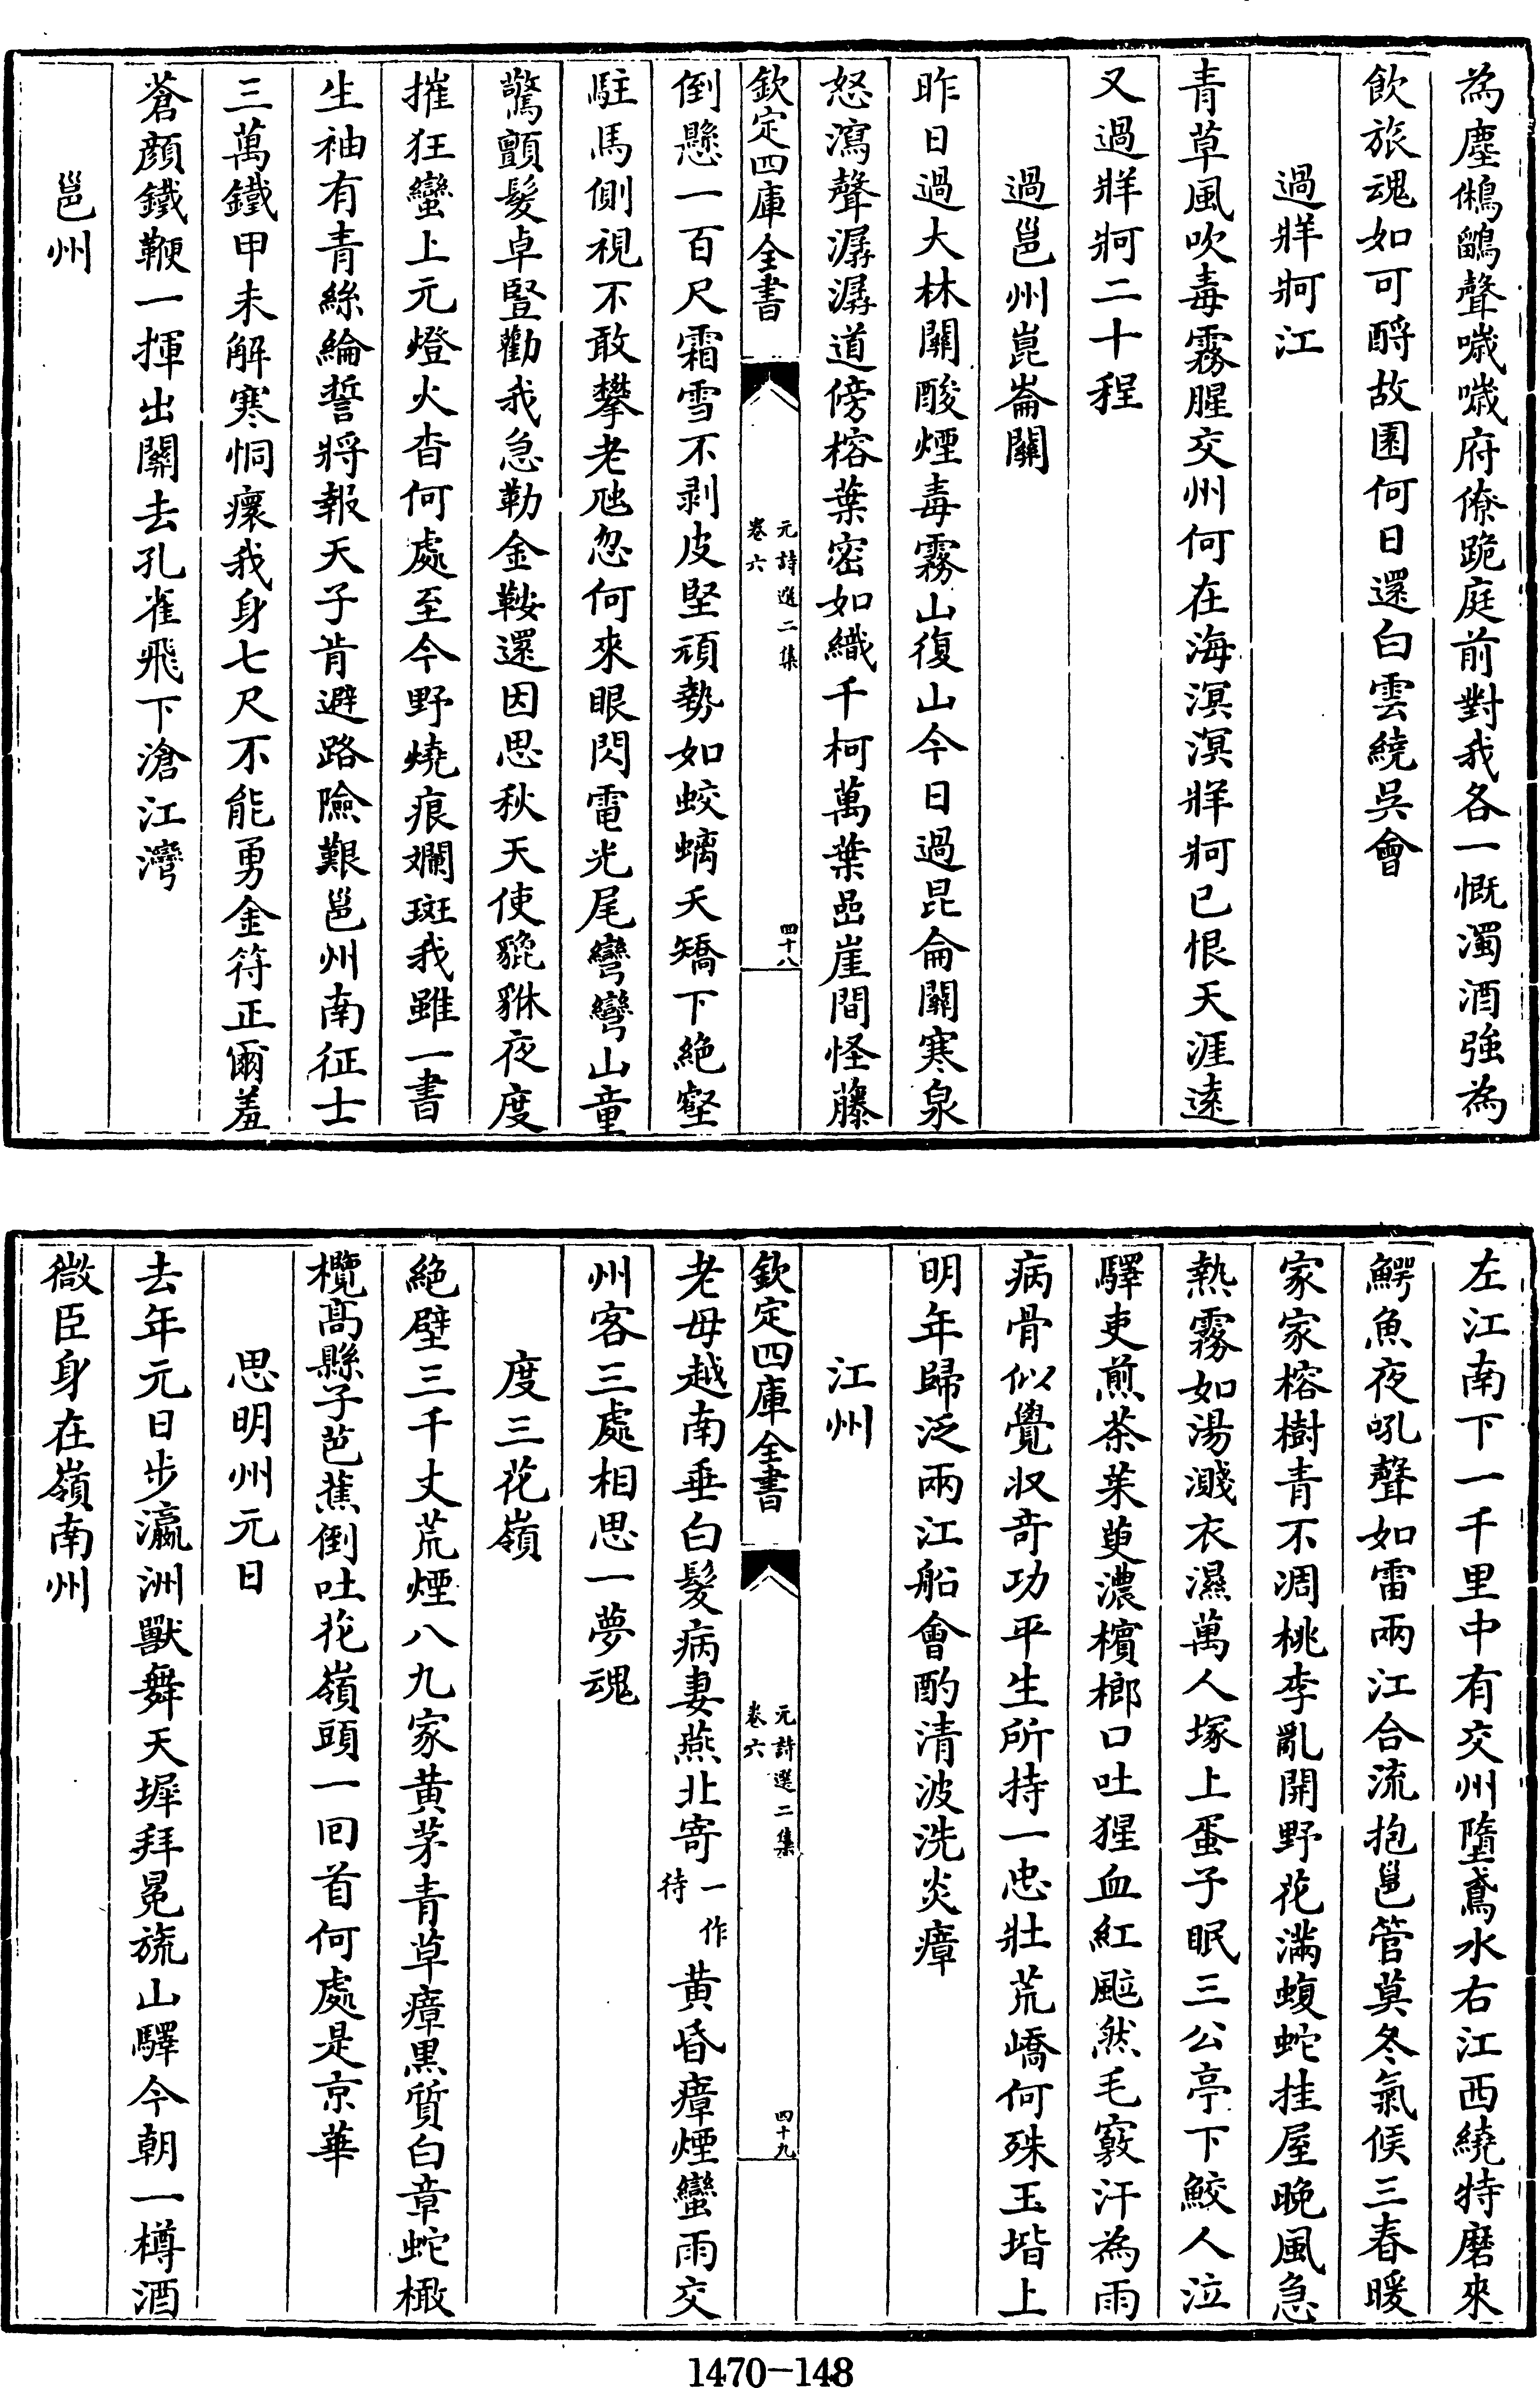 為塵鵂鶹聲嘰嘰府僚跪庭前對我各一慨濁酒強為
飲旅魂如可酹故園何日還白雲繞吳會
過牂牁江
青草風吹毒霧腥交州何在海溟溟牂牁已恨天涯遠
又過牂牁二十程
過邕州崑崙關
昨日過大林關酸煙毒霧山復山今日過昆侖關寒泉
怒瀉聲潺潺道傍榕葉密如織千柯萬葉嵒崖間怪藤
欽定四庫全書
元詩選二集
卷六
四十八
倒懸一百尺霜雪不剥皮堅頑勢如蛟螭夭矯下絶壑
駐馬側視不敢攀老虺忽何來眼閃電光尾彎彎山童
驚顫髮卓豎勸我急勒金鞍還因思秋天使貔貅夜度
摧狂蠻上元燈火杳何處至今野燒痕斕斑我雖一書
生袖有青絲綸誓將報天子肯避路險艱邕州南征士
三萬鐵甲未解寒恫瘝我身七尺不能勇金符正爾羞
蒼顔鐵鞭一揮出關去孔雀飛下滄江灣
邕州
左江南下一千里中有交州墮鳶水右江西繞特磨來
鰐魚夜吼聲如雷兩江合流抱邕管莫冬氣候三春暖
家家榕樹青不凋桃李亂開野花滿蝮蛇挂屋晚風急
熱霧如湯濺衣濕萬人塚上蛋子眠三公亭下鮫人泣
驛吏煎茶茱萸濃檳榔口吐猩血紅颯然毛竅汗為雨
病骨似覺収竒功平生所持一忠壯荒嶠何殊玉堦上
明年歸泛兩江船會酌清波洗炎瘴
江州
欽定四庫全書
元詩選二集
卷六
四十九
老母越南垂白髮病妻燕北寄一作待黄昏瘴煙蠻雨交
州客三處相思一夢魂
度三花嶺
絶壁三千丈荒煙八九家黄茅青草瘴黒質白章蛇橄
欖髙縣子芭蕉倒吐花嶺頭一回首何處是京華
思明州元日
去年元日步瀛洲獸舞天墀拜冕旒山驛今朝一樽酒
微臣身在嶺南州
1470-148